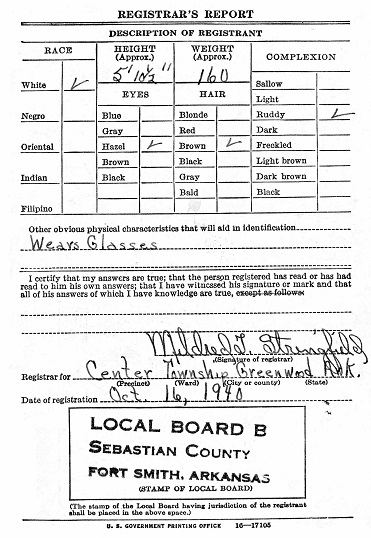 REGISTRAR'S REPORT
DESCRIPTION OF REGISTRANT
RACE
HEIGHT (Approx.)
WEIGHT (Approx.)
COMPLEXION
5' 10½"
160
White ✓
EYES
HAIR
Sallow
Light
Negro
Blue
Blonde
Ruddy ✓
Gray
Red
Dark
Oriental
Hazel ✓
Brown ✓
Freckled
Brown
Black
Light brown
Indian
Black
Gray
Dark brown
Bald
Black
Filipino
Other obvious physical characteristics that will aid in identification
Wears Glasses
I certify that my answers are true; that the person registered has read or has had
read to him his own answers; that I have witnessed his signature or mark and that
all of his answers of which I have knowledge are true, except as follows:
Mildred Stringfield
(Signature of registrar)
Registrar for Center Township Greenwood Ark.
(Precinct) (Ward) (City or county) (State)
Date of registration Oct. 16, 1940
LOCAL BOARD B
SEBASTIAN COUNTY
FORT SMITH, ARKANSAS
(STAMP OF LOCAL BOARD)
(The stamp of the Local Board having jurisdiction of the registrant
shall be placed in the above space.)
U. S. GOVERNMENT PRINTING OFFICE 16—17105